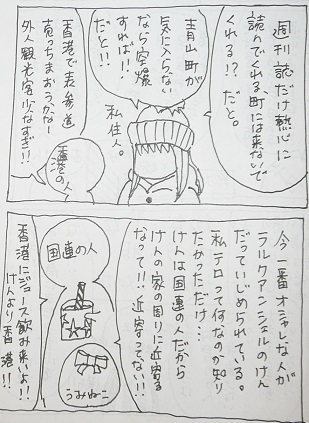 週刊誌だけ熱心に
読んでくれる、町には来ないで
くれる!?だと。
青山町が
気に入らない
なら空爆
すれば!!
だと!!
私住人。
香港で表参道
売っちまおうかなー
外人観光客少なすぎ!!
香港の人
今一番オシャレな人が
ラルクアンシエルのけん
だっていじめられている。
私テロって何なのか知り
たかっただけ…
けんは国連の人だから
けんの家の周りに近寄る
なって!!近寄ってない!!
国連の人
うみねこ
香港にジュース飲み来いよ!!
けんより香港!!